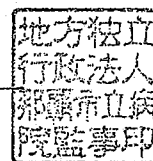 地方独立
行政法人
那覇市立病
院監事印